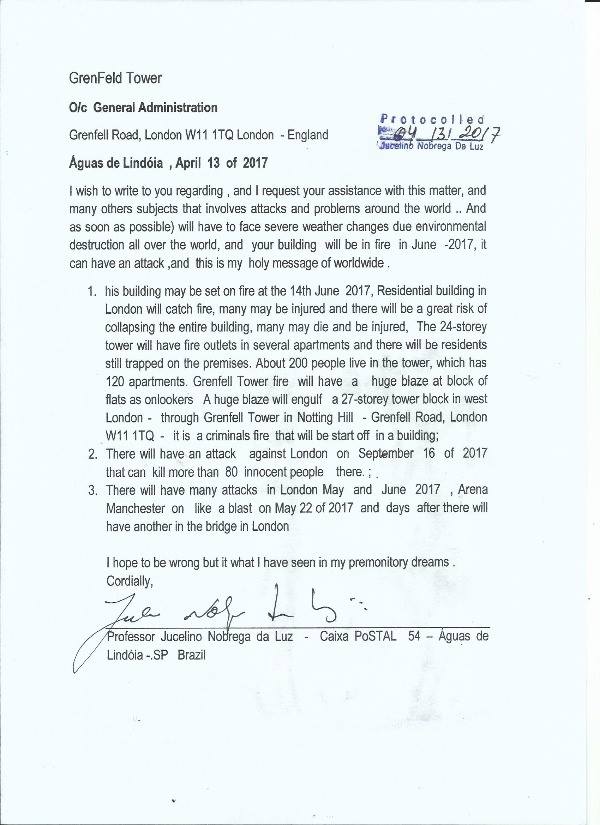 GrenFeld Tower
O/c General Administration
Protocolled
04 /13/ 2017
Jucelino Nobrega Da Luz
Grenfell Road, London W11 1TQ London - England
Águas de Lindóia , April 13 of 2017
I wish to write to you regarding , and I request your assistance with this matter, and
many others subjects that involves attacks and problems around the world .. And
as soon as possible) will have to face severe weather changes due environmental
destruction all over the world, and your building will be in fire in June -2017, it
can have an attack ,and this is my holy message of worldwide .
1. his building may be set on fire at the 14th June 2017, Residential building in
London will catch fire, many may be injured and there will be a great risk of
collapsing the entire building, many may die and be injured, The 24-storey
tower will have fire outlets in several apartments and there will be residents
still trapped on the premises. About 200 people live in the tower, which has
120 apartments. Grenfell Tower fire will have a huge blaze at block of
flats as onlookers A huge blaze will engulf a 27-storey tower block in west
London - through Grenfell Tower in Notting Hill - Grenfell Road, London
W11 1TQ - it is a criminals fire that will be start off in a building;
2. There will have an attack against London on September 16 of 2017
that can kill more than 80 innocent people there. ; .
3. There will have many attacks in London May and June 2017 , Arena
Manchester on like a blast on May 22 of 2017 and days after there will
have another in the bridge in London
I hope to be wrong but it what I have seen in my premonitory dreams .
Cordially,
Professor Jucelino Nobrega da Luz - Caixa PoSTAL 54 – Águas de
Lindóia -.SP Brazil